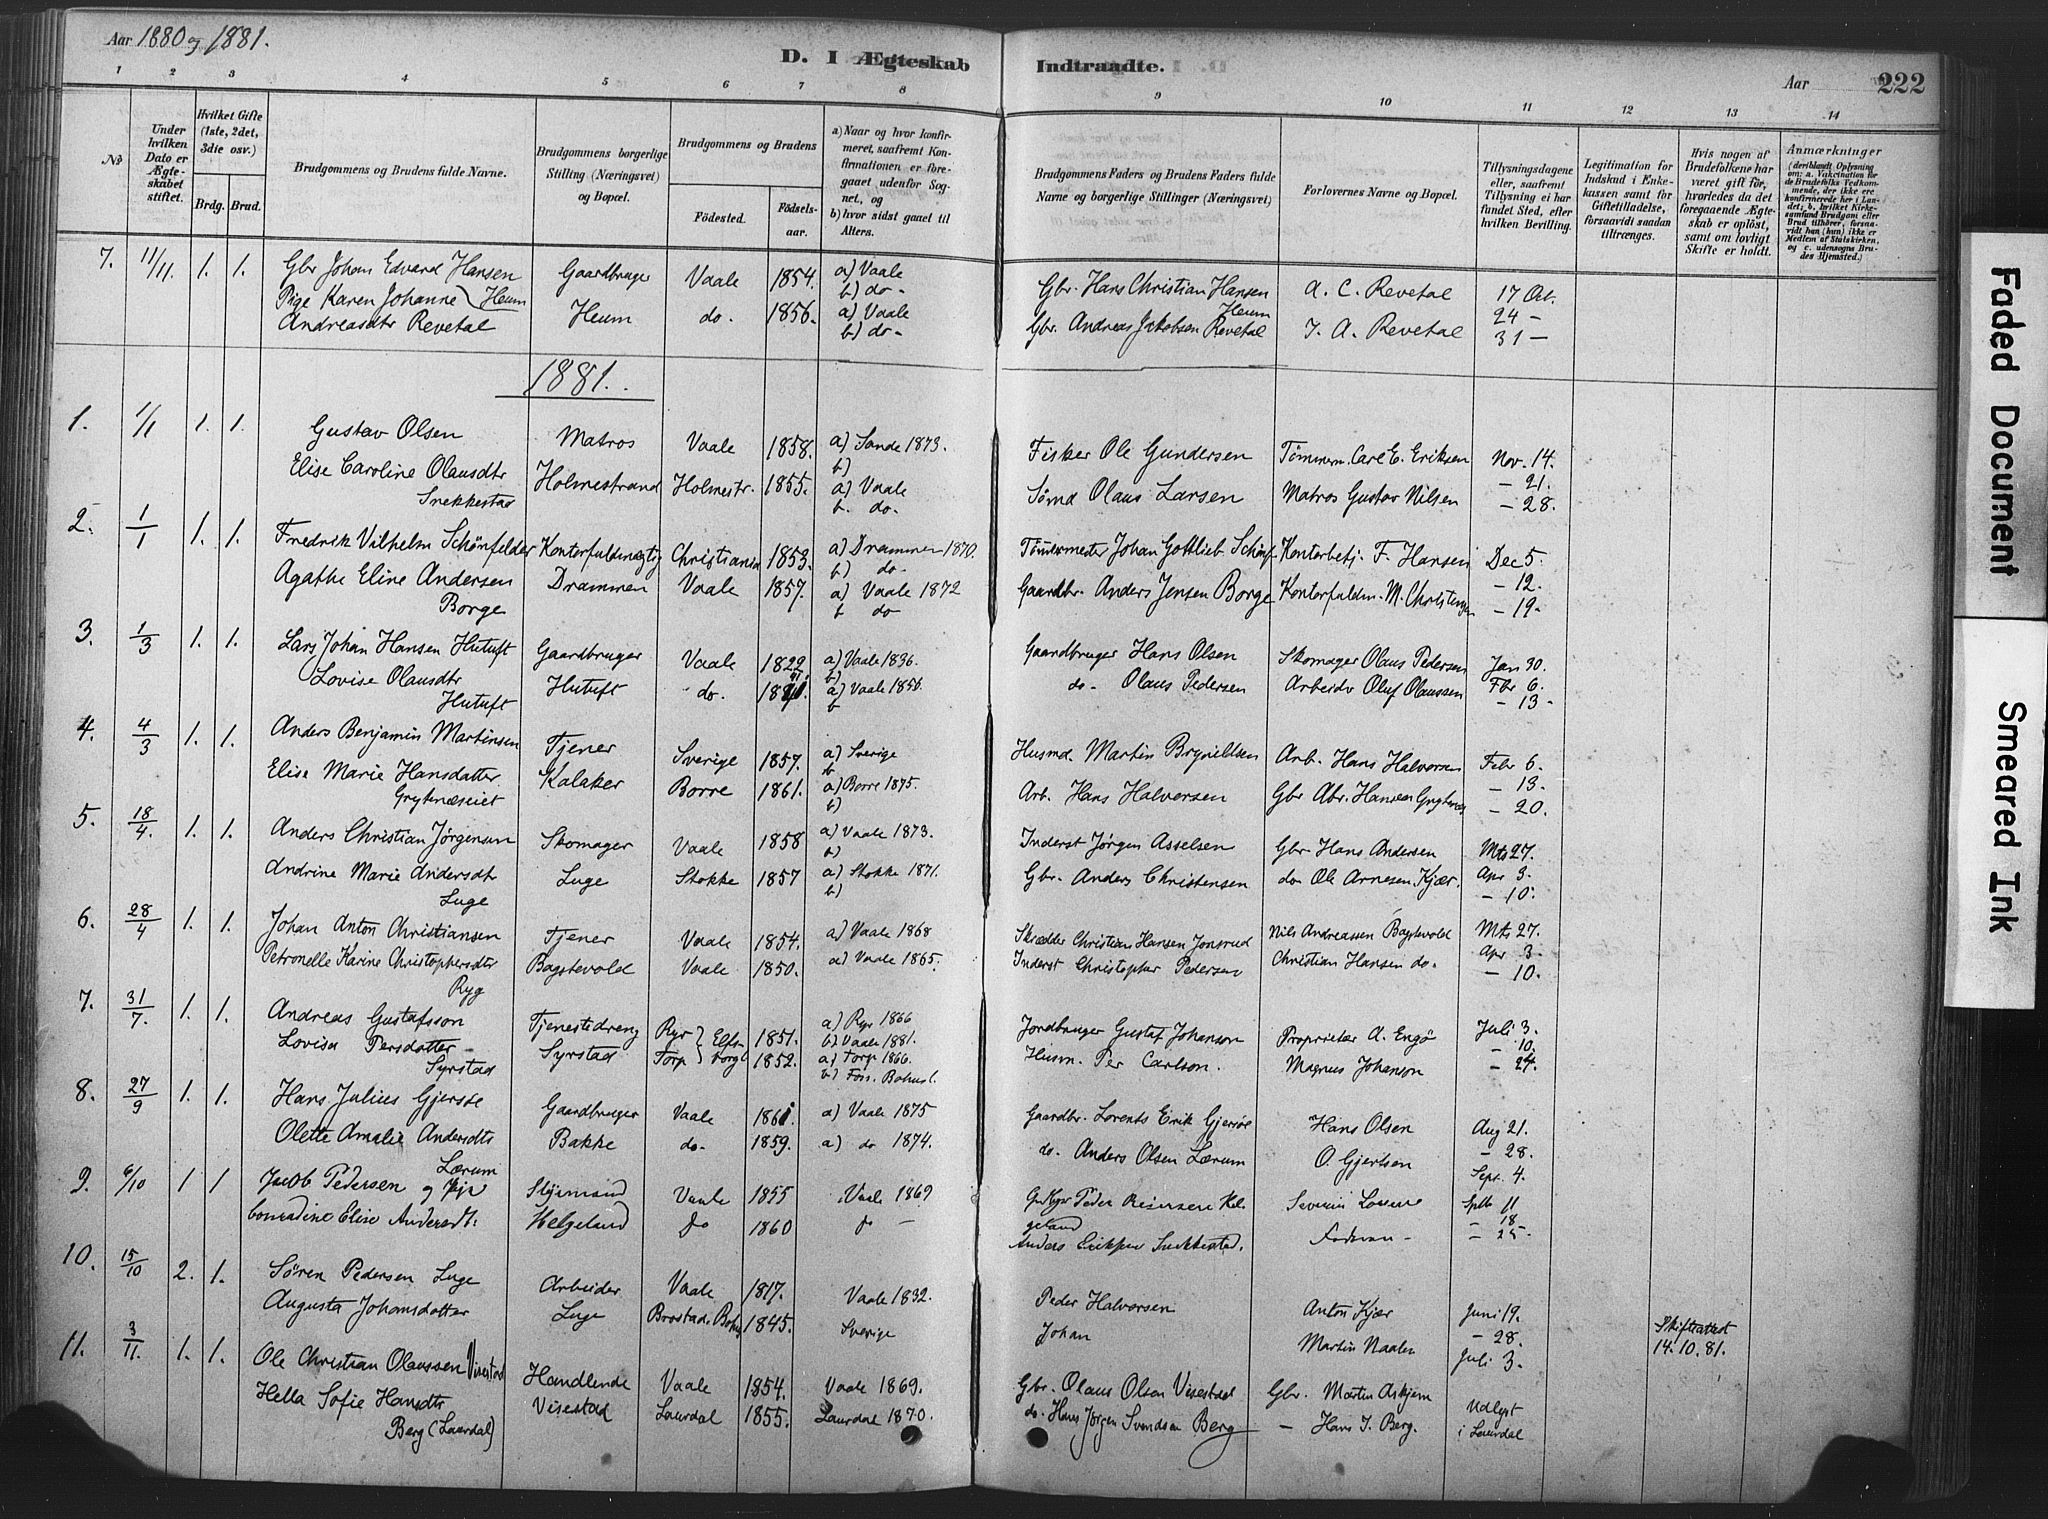 Aar 1880 og 1881.
D. I Ægteskab Indtraadte.
Aar 222
1 2 3 4 5 6 7 8 9 10 11 12 13 14
No
Under hvilken Dato er Ægteskabet stiftet.
Hvilket Gifte (1ste, 2det, 3die osv.)
Brdg. Brud.
Brudgommens og Brudens fulde Navne.
Brudgommens borgerlige Stilling (Næringsvei) og Bopæl.
Brudgommens og Brudens
Födested. Födselsaar.
a) Naar og hvor konfirmeret, saafremt Konfirmationen er foregaaet udenfor Sognet, og
b) hvor sidst gaaet til Alters.
Brudgommens Faders og Brudens Faders fulde Navne og borgerlige Stillinger (Næringsvei)
Forlovernes Navne og Bopæl.
Tillysningsdagene eller, saafremt Tillysning ei har fundet Sted, efter hvilken Bevilling.
Legitimation for Indskud i Enkekassen samt for Giftetilladelse, forsaavidt saadan tiltrænges.
Hvis nogen af Brudefolkene har været gift før, hvorledes da det foregaaende Ægteskab er opløst, samt om lovligt Skifte er holdt.
Anmærkninger (deriblandt Oplysning om: a. Vakcination for de Brudefolks Vedkommende, der ikke ere konfirmerede her i Landet; b. hvilket Kirkesamfund Brudgom eller Brud tilhører, forsaavidt han (hun) ikke er Medlem af Statskirken, og c. udensogns Brudes Hjemsted.)
7. 11/11. 1. 1. Gbr Johan Edvard Hansen Heum Gaardbruger Vaale 1854. a) Vaale b) do - Gbr. Hans Christian Hansen Heum A. C. Revetal 17 Oct.
Pige Karen Johanne Andreasdtr Revetal Heum do. 1856. a) Vaale b) do - Gbr. Andreas Jakobsen Revetal J. A. Revetal 24 - 31 -
1881.
1. 1/1 1. 1. Gustav Olsen Matros Vaale 1858. a) Sande 1873. b) Fisker Ole Gundersen Tömmerm. Carl E. Eriksen Nov. 14.
Elise Caroline Olausdtr Snekkestad Holmestrand Holmestr. 1855. a) Vaale b. do. Sømd Olaus Larsen Matros Gustav Nilsen - 21. - 28.
2. 1/1 1. 1. Fredrik Vilhelm Schönfelder Kontorfuldmægtig Christiania 1853. a) Drammen 1870. b) do - Tömmermester Johan Gottlieb Schönf Kontorbetj. F. Hansen Dec 5.
Agathe Eline Andersen Borge Drammen Vaale 1857. a) Vaale 1872 b do Gaardbr. Anders Jensen Borge Kontorfuldm. M. Christensen - 12. - 19.
3. 1/3 1. 1. Lars Johan Hansen Hutuft Gaardbruger Vaale 1822 a) Vaale 1836. b) Gaardbruger Hans Olsen Skomager Olaus Pedersen Jan 30.
Lovise Olausdtr Hutuft Hutuft do. a) Vaale 1856. b do. Olaus Pedersen Arbeider Oluf Olaussen Fbr 6. - 13 -
4. 4/3 1. 1. Anders Benjamin Martinsen Tjener Sverige 1857. a) Sverige b Husmd. Martin Brynildsen Arb. Hans Halvorsen Febr 6.
Elise Marie Hansdatter Grytenæseiet Kalaker Borre 1861. a) Borre 1875. b) Arb. Hans Halversen Gbr Abr. Hansen Grytenæs - 13. - 20.
5. 18/4. 1. 1. Anders Christian Jørgensen Skomager Vaale 1858 a) Vaale 1873. b) Inderst Jørgen Asselsen Gbr. Hans Andersen Mts 27.
Andrine Marie Andersdtr Luge Luge Stokke 1857 a) Stokke 1871. b) Gbr. Anders Christensen do Ole Arnesen Kjær. Apr 3. - 10.
6. 28/4 1. 1. Johan Anton Christiansen Tjener Vaale 1854. a) Vaale 1868 Skrædder Christian Hansen Jonsrud Nils Andreassen Bagstevold Mts 27.
Petronelle Karine Christophersdtr Ryg Bagstevold Vaale 1850. a) Vaale 1865. Inderst Christopher Pedersen Christian Hansen do. Apr 3. - 10.
7. 31/7. 1. 1. Andreas Gustafsson Tjenestedreng Ryr 1851. a) Ryr 1866 b) Vaale 1881. Jordbruger Gustaf Johanson Proprietær A. Engö Juli 3.
Lovisa Persdatter Syrstad Syrstad Torp 1852. a) Torp 1866. b) Foss. Bohusl. Husm. Per Carlson. Magnus Johanson - 10. - 24.
8. 27/9 1. 1. Hans Julius Gjersøe Gaardbruger Vaale 1861. a) Vaale 1875 Gaardbr. Lorents Erik Gjersøe Hans Olsen Aug 21.
Olette Amalie Andersdtr Lærum Bakke do. 1859. a) do 1874. do. Anders Olsen Lærum O. Gjertsen - 28. Sept. 4.
9. 6/10 1 1 Jacob Pedersen og Pige Styrmand Vaale 1855 Vaale 1869 Peder Reiersen Helgeland Severin Septb 11
Conradine Elise Andersdt: Helgeland do 1860 do - Anders Snekkestad. Faderen - - 18 - - 25 -
10. 15/10 2. 1. Søren Pedersen Luge Arbeider Vaale 1817. Vaale 1832. Peder Halvorsen Anton Kjær Juni 19.
Augusta Johansdatter Luge Brastad. Bohus 1845. Sverige Johan Martin Naalen - 28. Juli 3. Skifteattest 14. 10. 81.
11. 3/11. 1. 1. Ole Christian Olaussen Visestad Handlende Vaale 1854. Vaale 1869. Gbr. Olaus Olsen Visestad Gbr. Martin Askjem Udlyst
Hella Sofie Hansdtr Berg (Laurdal) Visestad Laurdal 1855. Laurdal 1870. do. Hans Jørgen Svendsen Berg - Hans J. Berg. i Laurdal
Faded Document
Smeared Ink